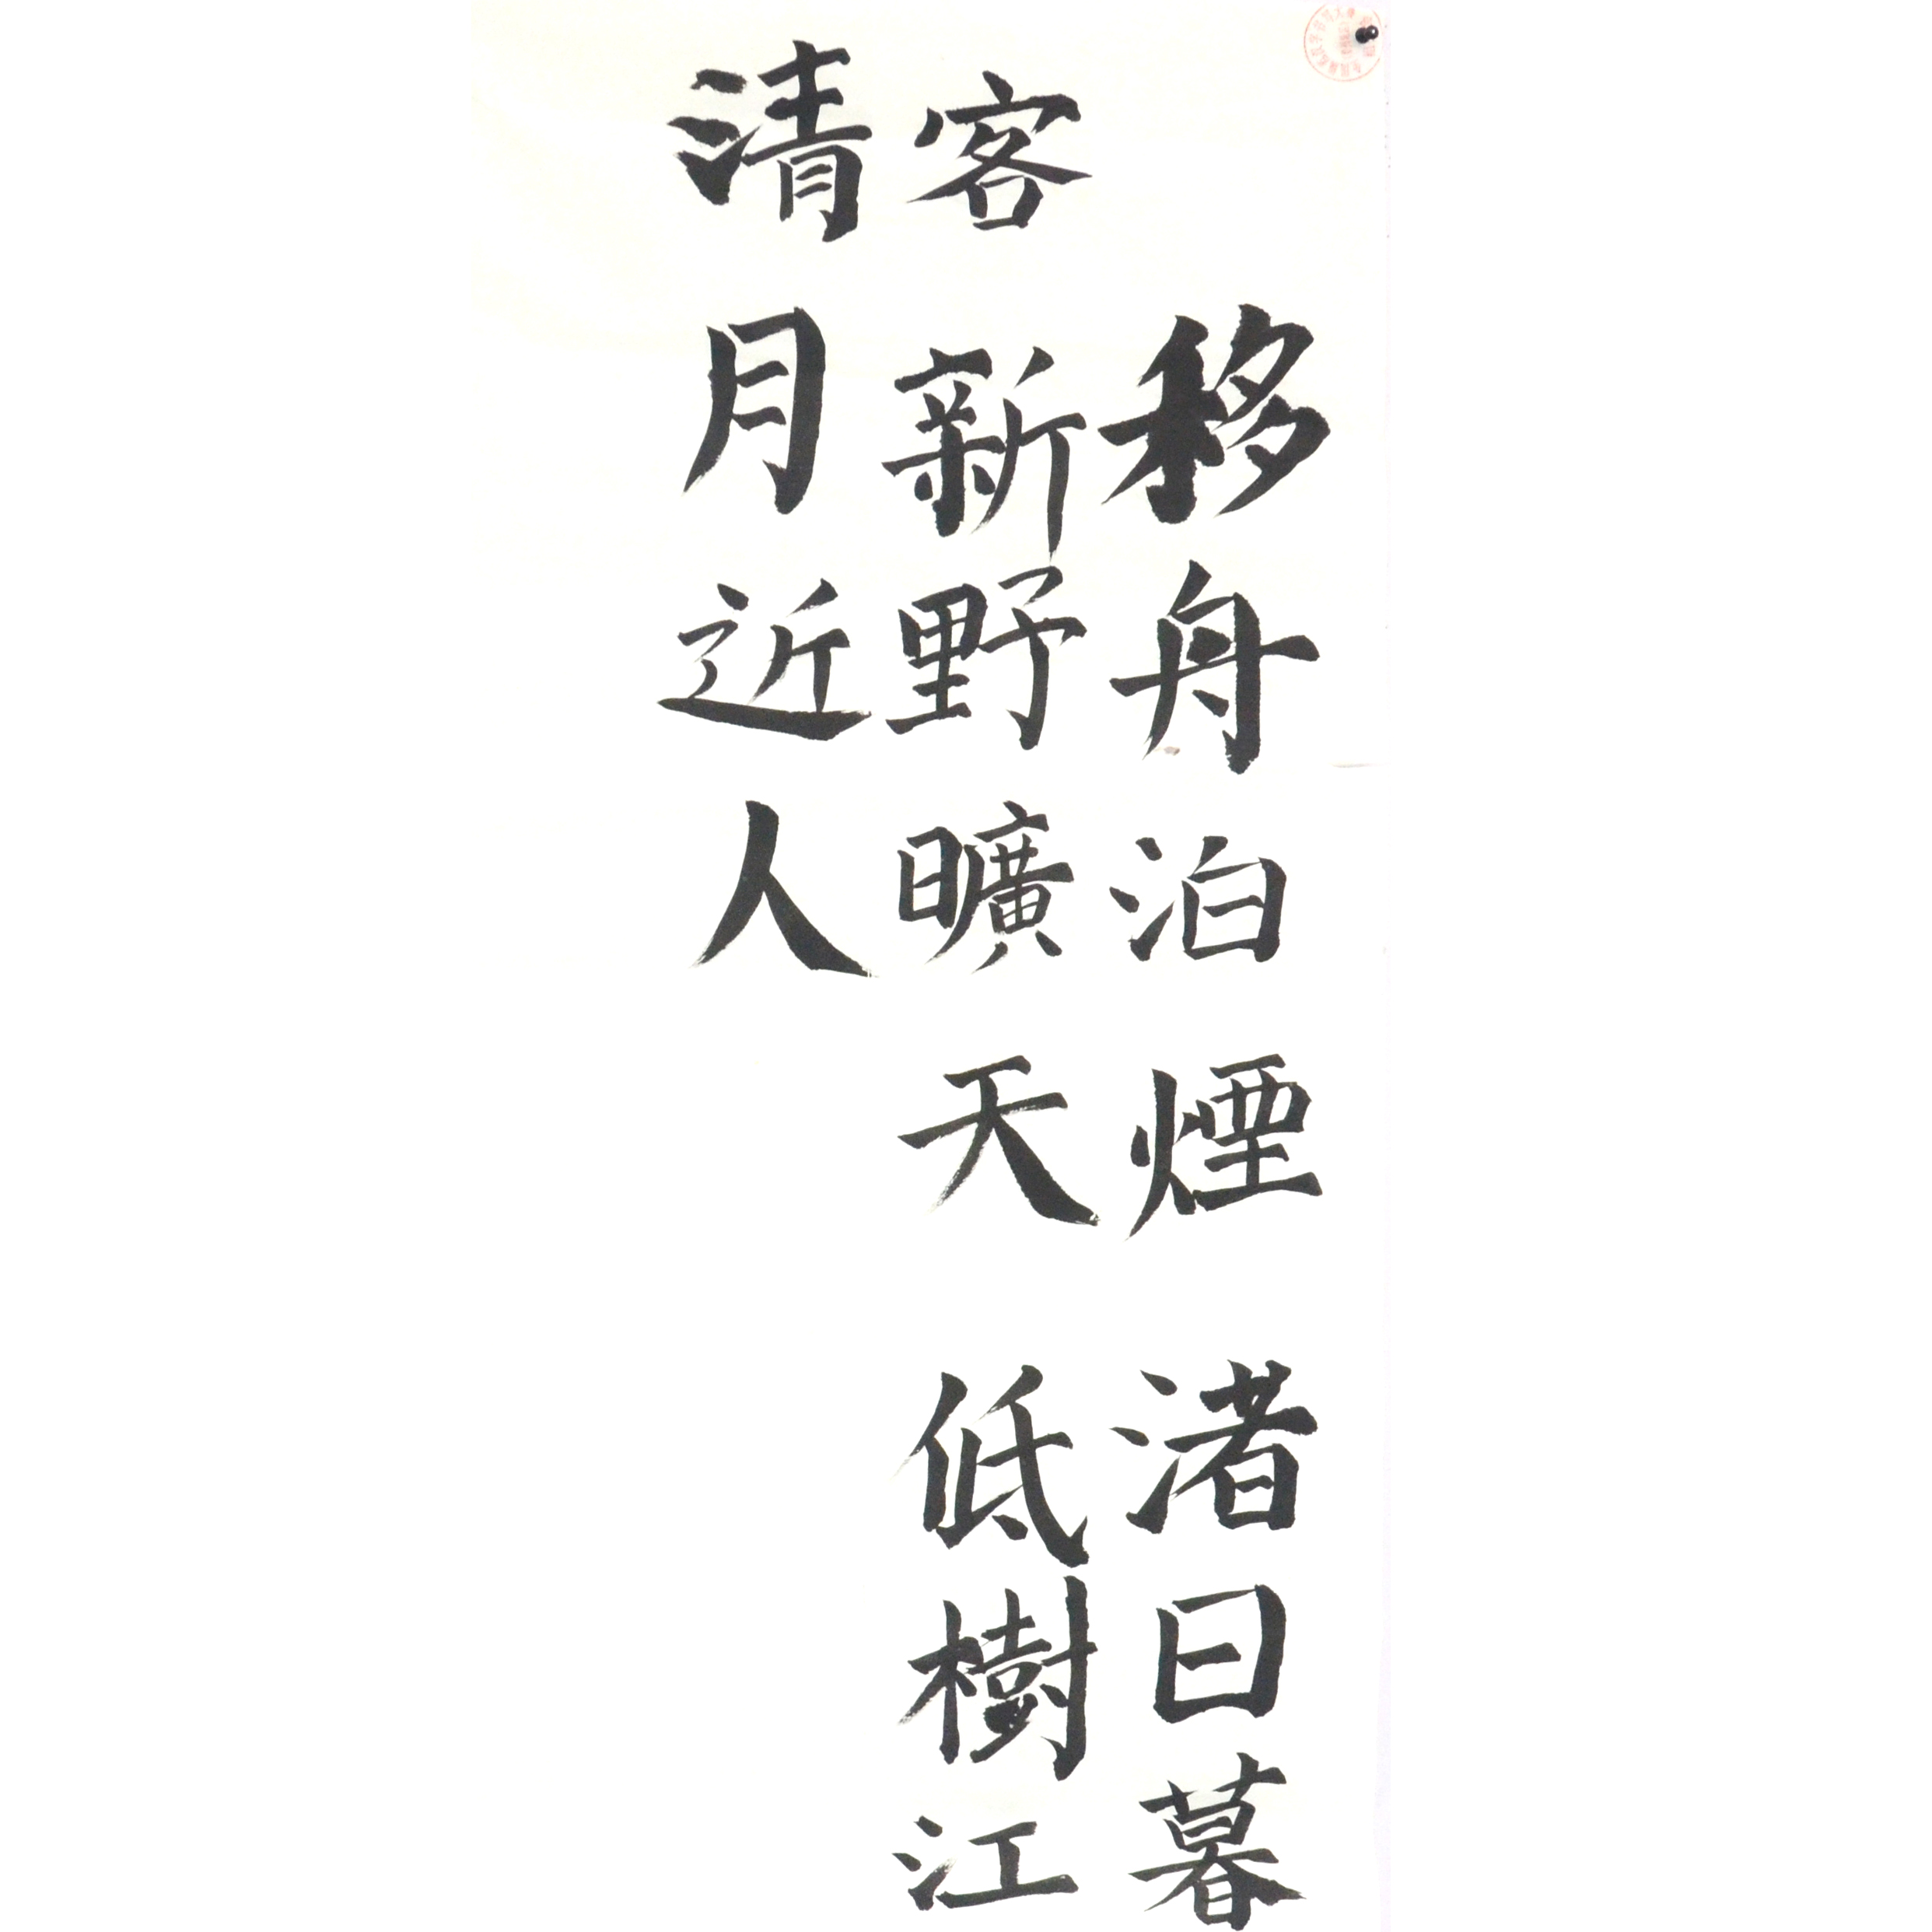 移舟泊煙渚日暮
客新野曠天低樹江
清月近人